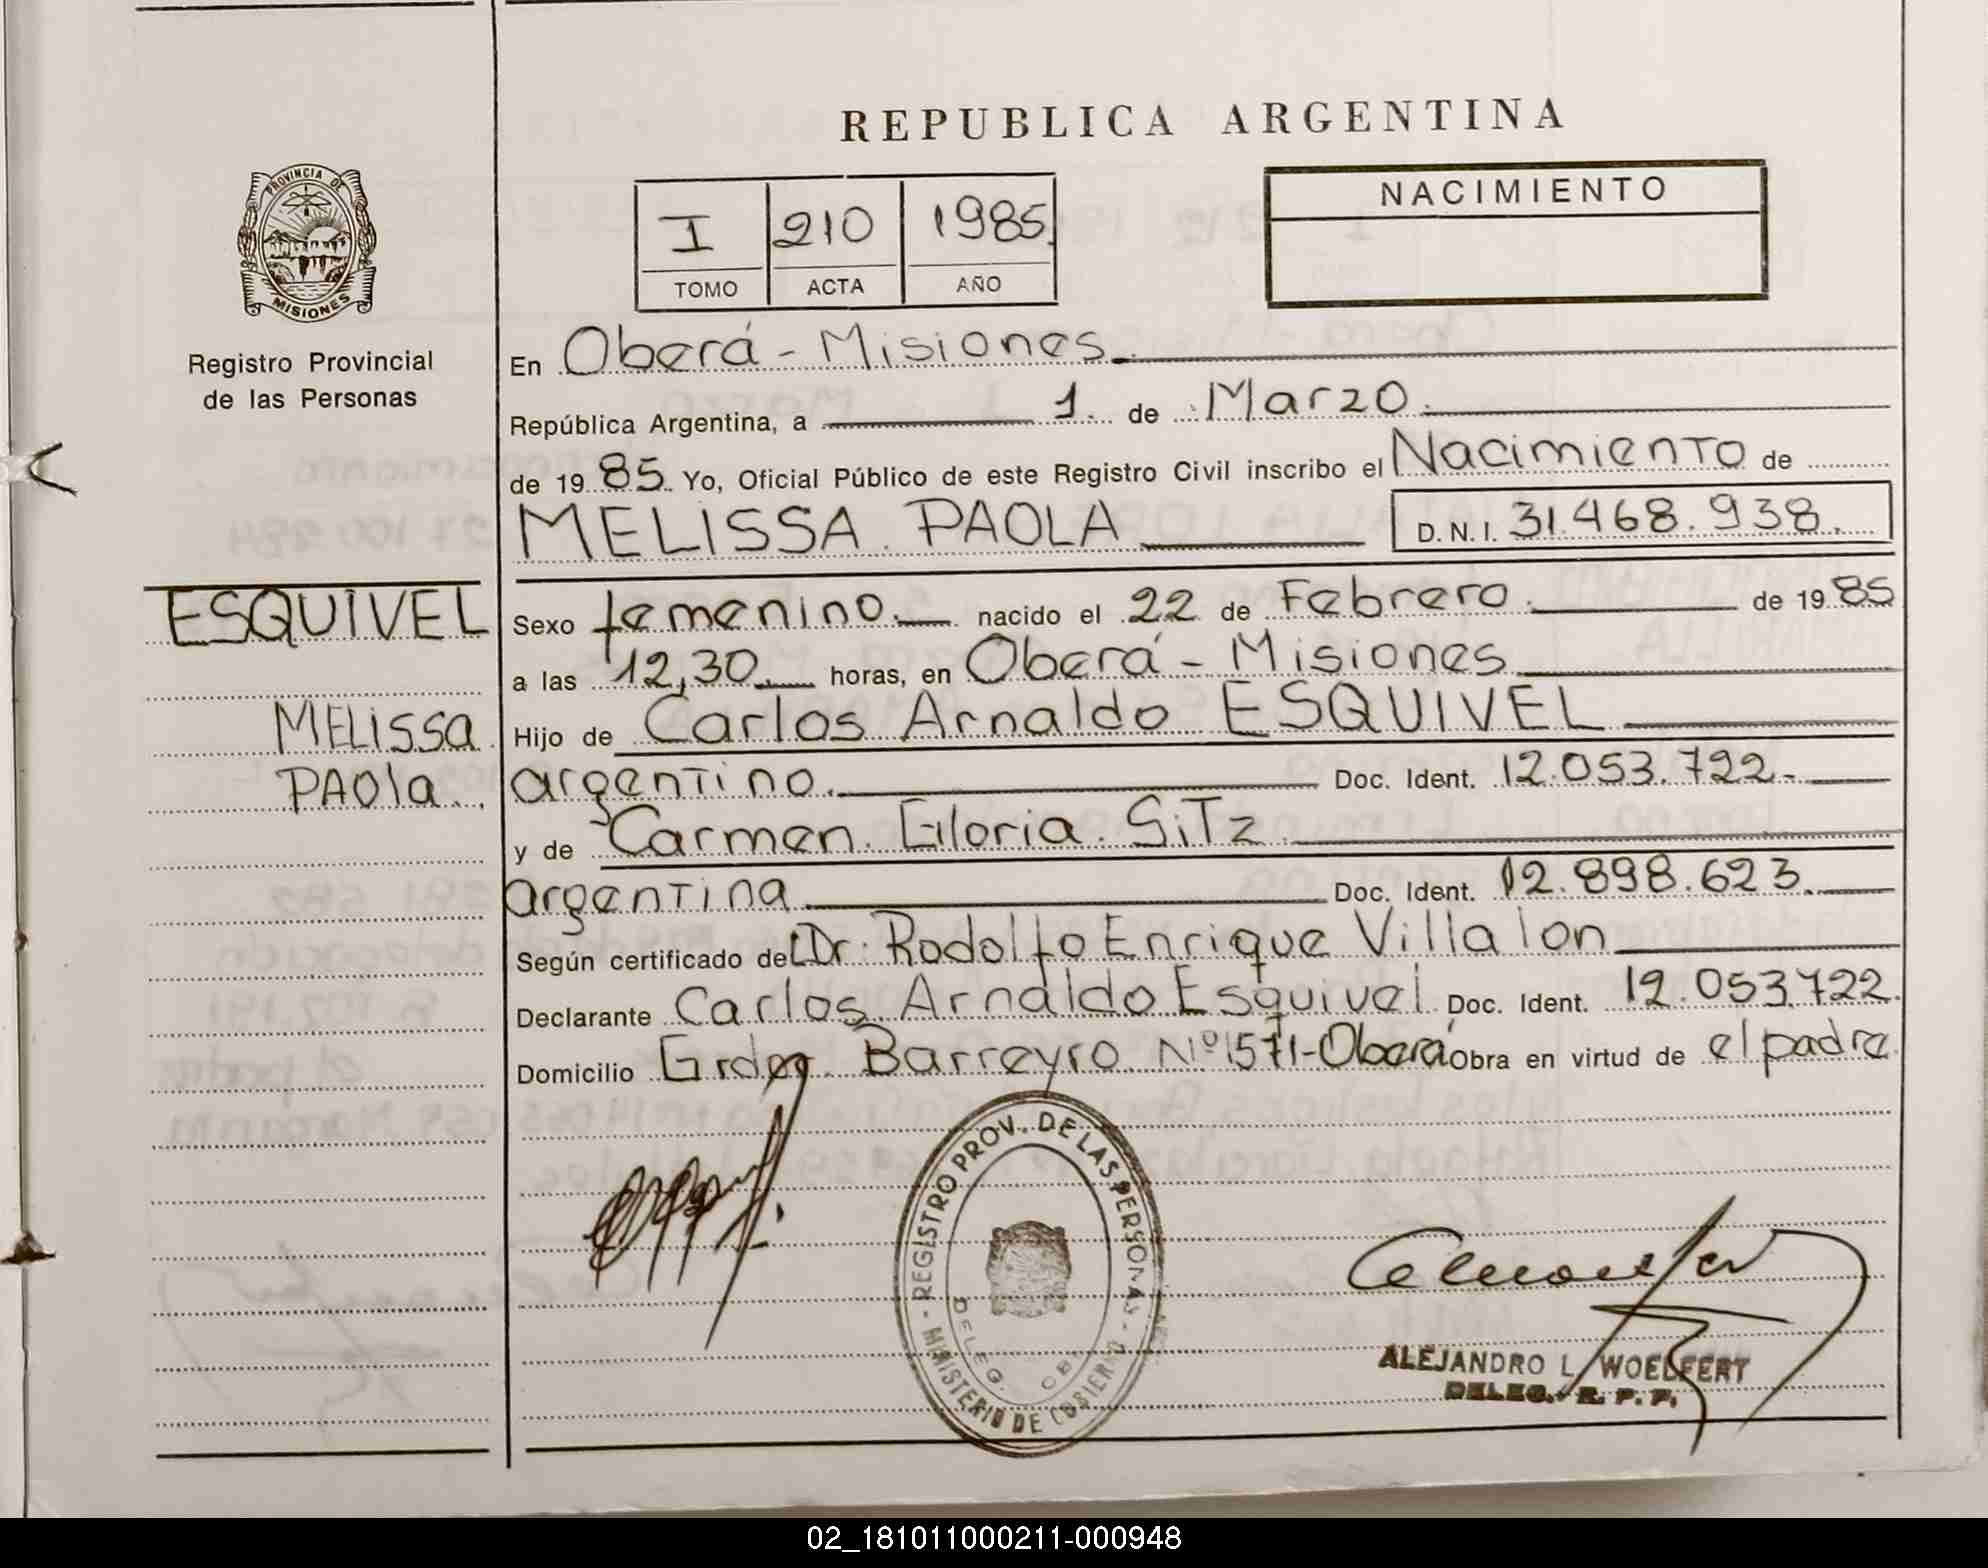 REPUBLICA ARGENTINA
PROVINCIA DE
MISIONES
Registro Provincial
de las Personas
I 210 1985
TOMO ACTA AÑO
NACIMIENTO
En Oberá - Misiones
República Argentina, a 1. de Marzo
de 19 85 Yo, Oficial Público de este Registro Civil inscribo el Nacimiento de
MELISSA PAOLA D.N.I. 31.468.938.
ESQUIVEL
MELISSA
PAOla
Sexo femenino. nacido el 22 de Febrero de 19 85
a las 12,30 horas, en Oberá - Misiones
Hijo de Carlos Arnaldo ESQUIVEL
argentino. Doc. Ident. 12.053.722-
y de Carmen Gloria SiTz
argentina Doc. Ident. 12.898.623.
Según certificado del Dr. Rodolfo Enrique Villalon
Declarante Carlos Arnaldo Esquivel Doc. Ident. 12.053.722.
Domicilio Grdor. Barreyro Nº 1571-Oberá Obra en virtud de el padre
REGISTRO PROV. DE LAS PERSONAS
MINISTERIO DE GOBIERNO
DELEG. OB
ALEJANDRO L WOELFERT
DELEG. R. P. P.
02_181011000211-000948